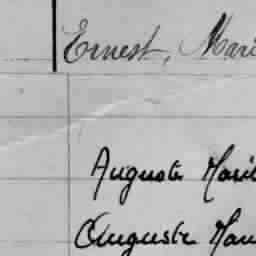 Ernest, Mari
Auguste Mari
Auguste Mau